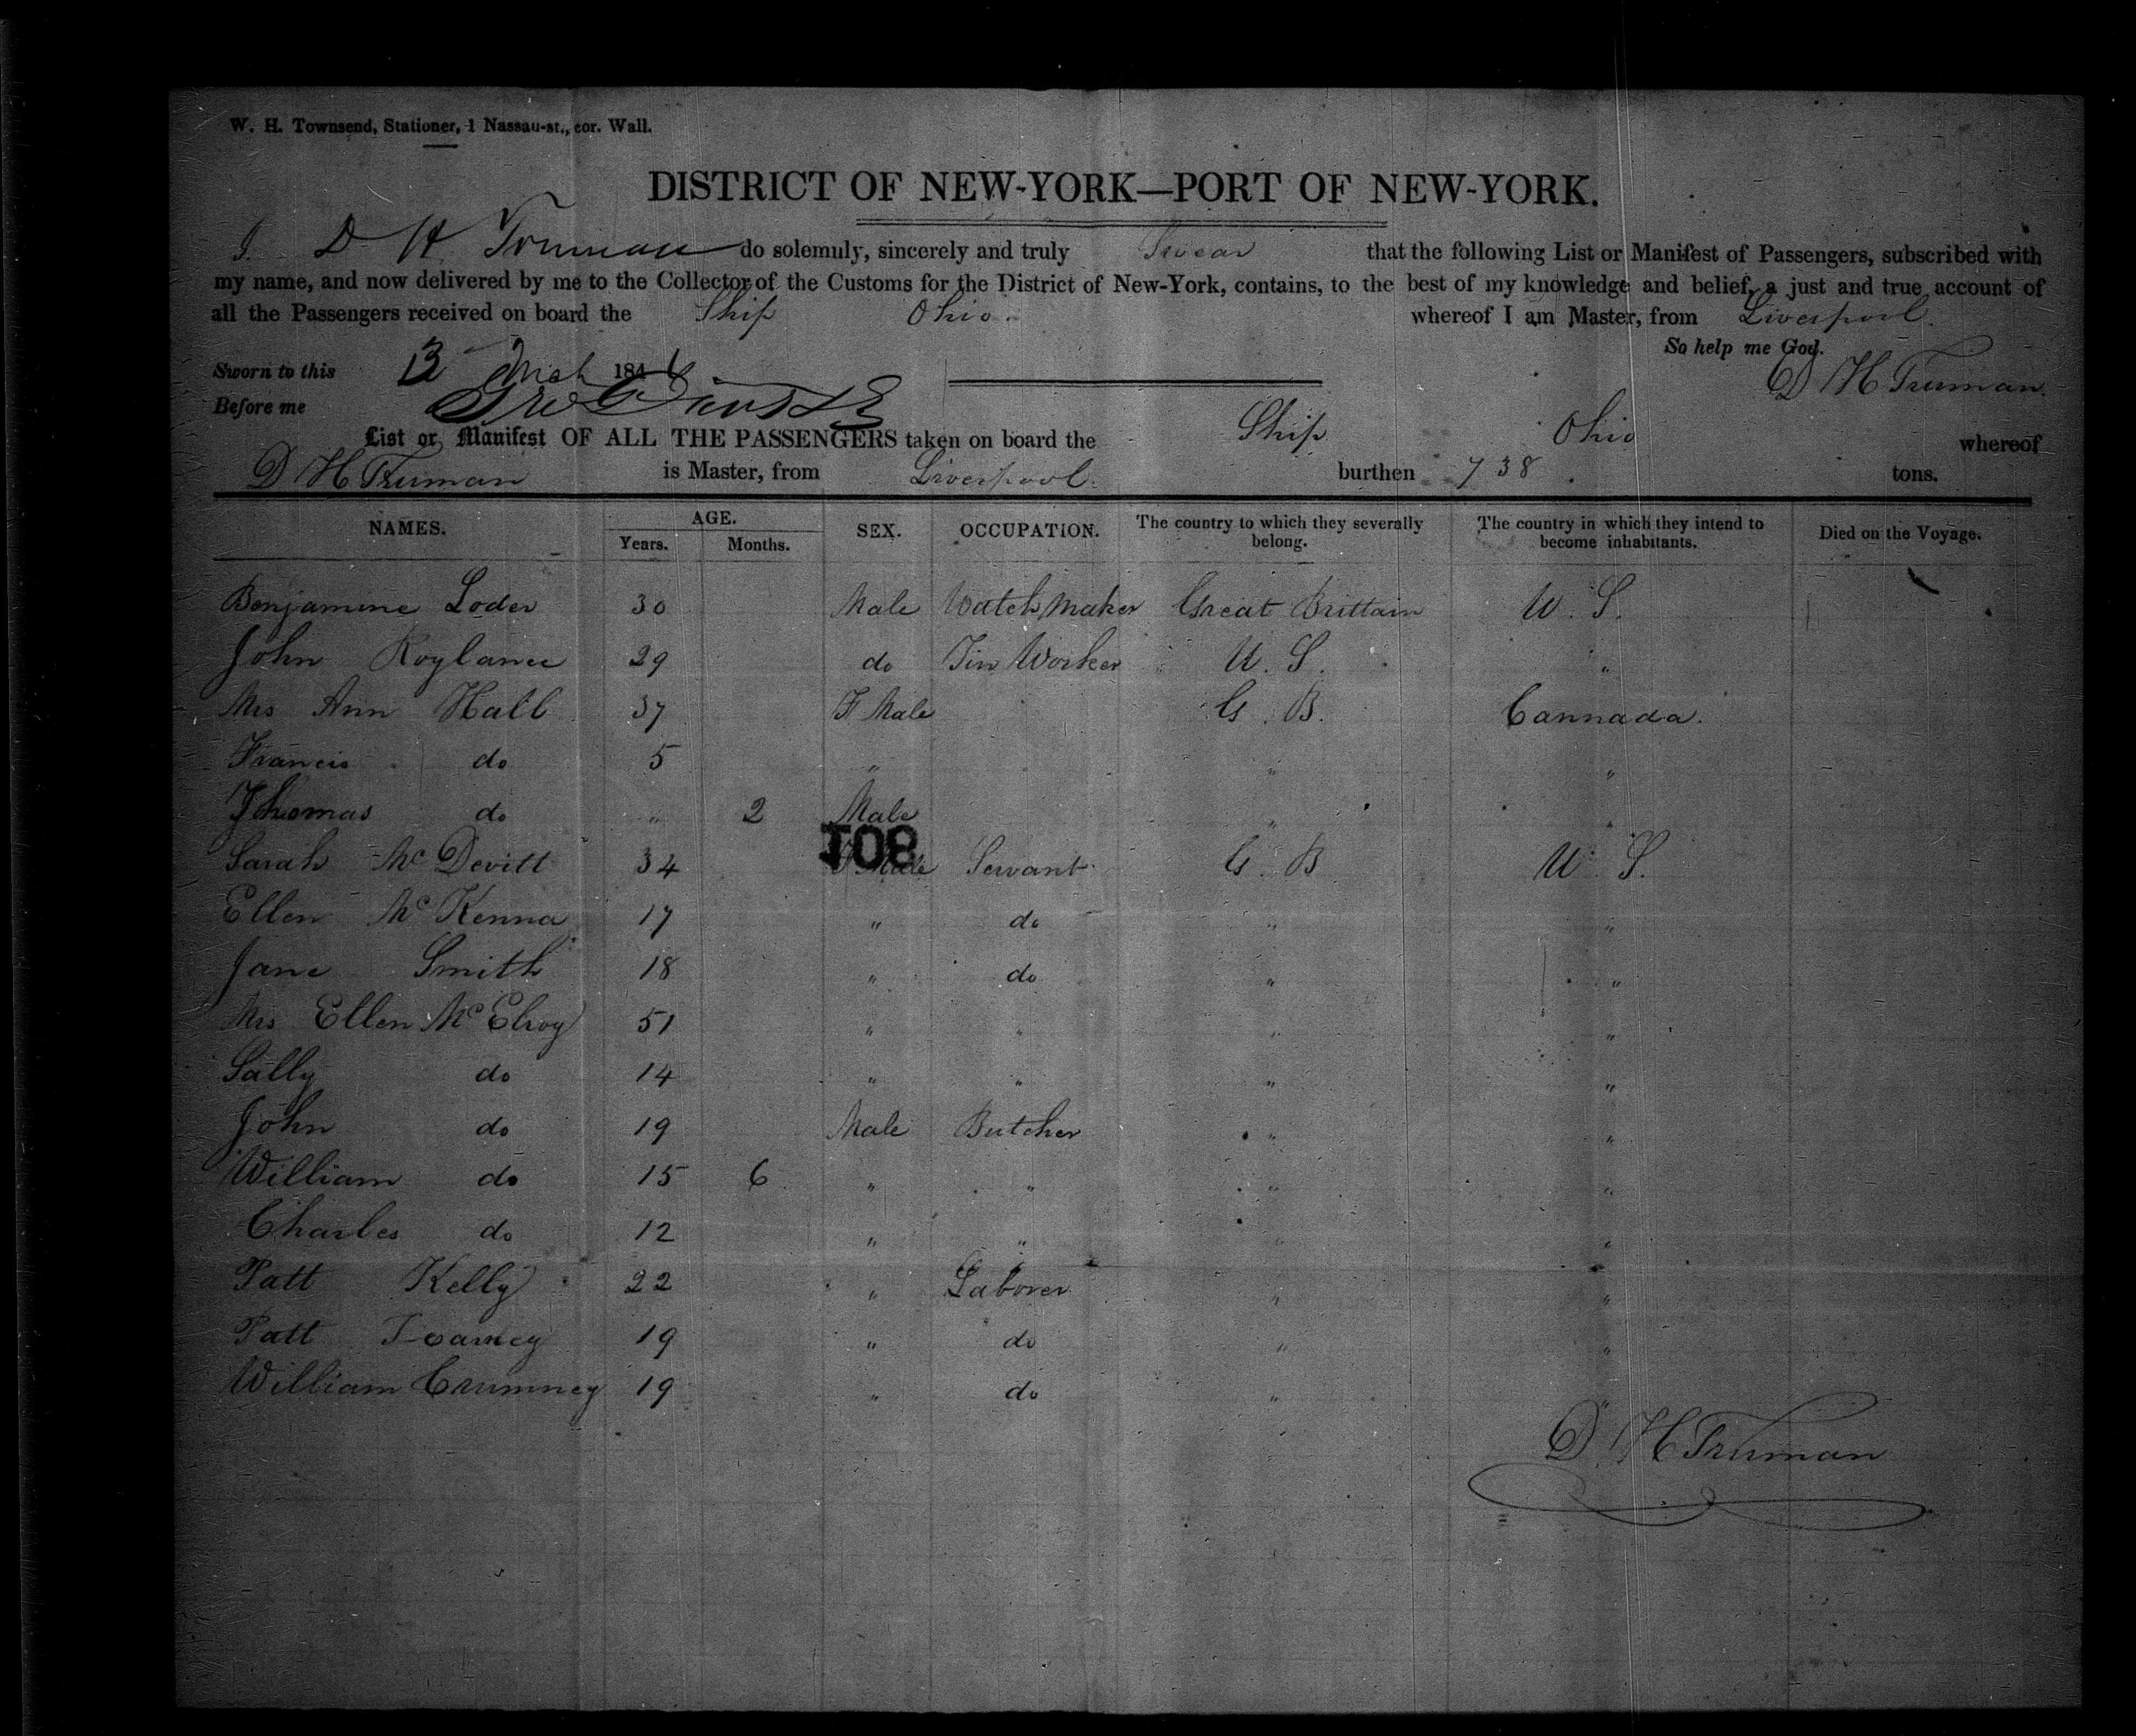 W. H. Townsend, Stationer, 1 Nassau-st., cor. Wall.
DISTRICT OF NEW-YORK—PORT OF NEW-YORK.
I D H Truman do solemnly, sincerely and truly Swear that the following List or Manifest of Passengers, subscribed with
my name, and now delivered by me to the Collector of the Customs for the District of New-York, contains, to the best of my knowledge and belief, a just and true account of
all the Passengers received on board the Ship Ohio whereof I am Master, from Liverpool.
So help me God.
Sworn to this 13 Mch 1846 D H Truman
Before me
List or Manifest OF ALL THE PASSENGERS taken on board the Ship Ohio whereof
D H Truman is Master, from Liverpool. burthen 738 tons.
NAMES. AGE. Years. Months. SEX. OCCUPATION. The country to which they severally belong. The country in which they intend to become inhabitants. Died on the Voyage.
Benjamine Loder 30 Male Watch Maker Great Brittain U. S.
John Roylance 29 do Tin Worker U. S. "
Mrs Ann Hall 37 F Male G. B. Cannada.
Francis do 5 " " "
Thomas do " 2 Male " "
108
Sarah McDevitt 34 F Male Servant G. B U. S.
Ellen McKenna 17 " do " "
Jane Smith 18 " do " "
Mrs Ellen McElroy 51 " " " "
Sally do 14 " " " "
John do 19 Male Butcher " "
William do 15 6 " " " "
Charles do 12 " " " "
Patt Kelly 22 " Laborer " "
Patt 19 " do " "
William Crumney 19 " do "
D. H Truman